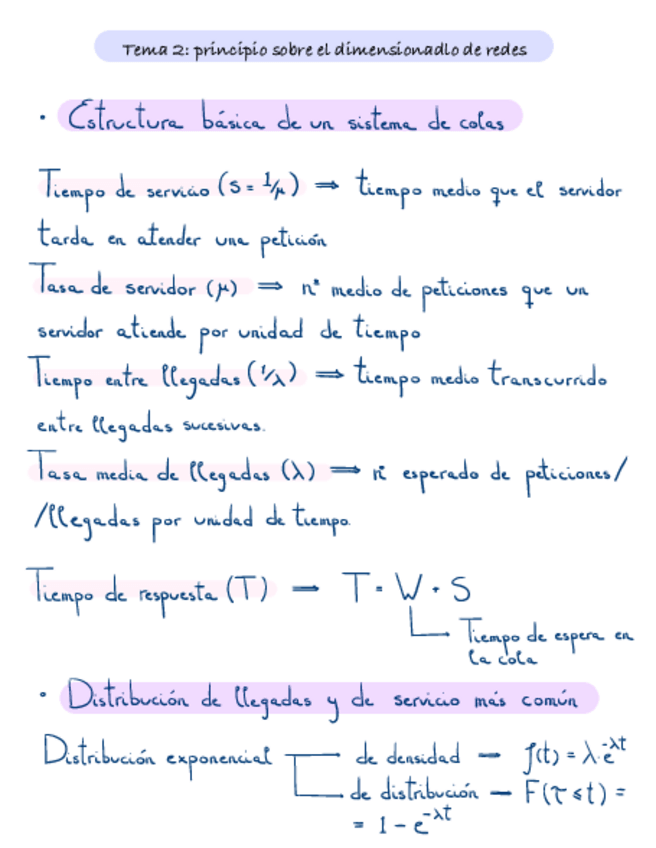 Tema 2: principio sobre el dimensionadlo de redes
• Estructura básica de un sistema de colas
Tiempo de servicio (s = 1/μ) ⇒ tiempo medio que el servidor
tarda en atender una petición
Tasa de servidor (μ) ⇒ nº medio de peticiones que un
servidor atiende por unidad de tiempo
Tiempo entre llegadas (1/λ) ⇒ tiempo medio transcurrido
entre llegadas sucesivas.
Tasa media de llegadas (λ) ⇒ nº esperado de peticiones/
/llegadas por unidad de tiempo.
Tiempo de respuesta (T) → T = W + S
Tiempo de espera en
la cola
• Distribución de llegadas y de servicio más común
Distribución exponencial de densidad – f(t) = λ·e^-λt
de distribución – F(τ ≤ t) =
= 1 - e^-λt